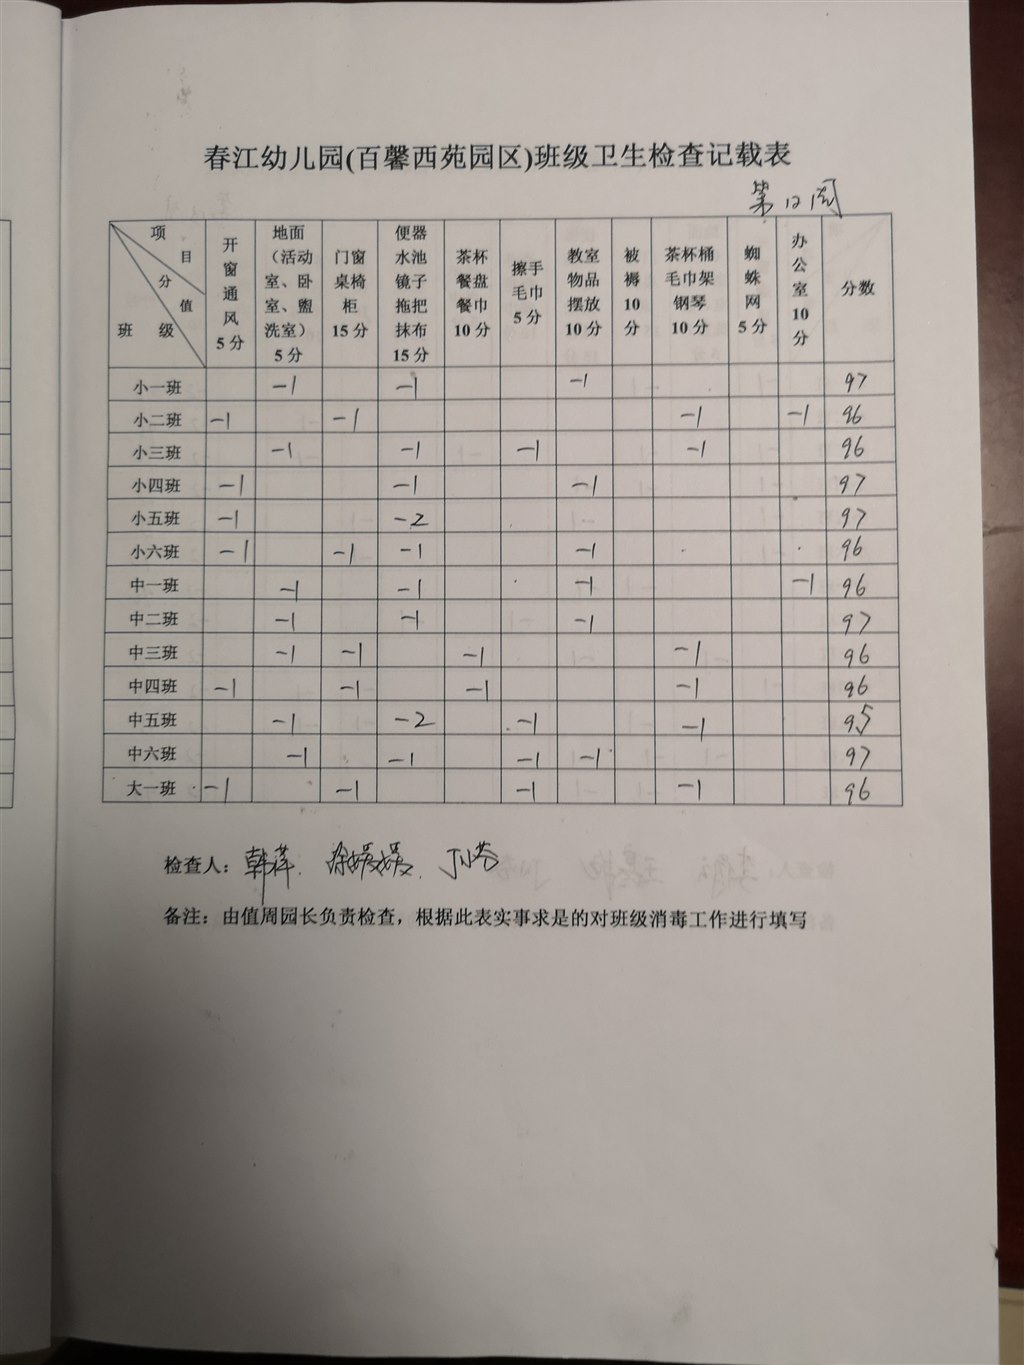 春江幼儿园(百馨西苑园区)班级卫生检查记载表
第12周
项目 分值 班级 开窗通风5分 地面（活动室、卧室、盥洗室）5分 门窗桌椅柜15分 便器水池镜子拖把抹布15分 茶杯餐盘餐巾10分 擦手毛巾5分 教室物品摆放10分 被褥10分 茶杯桶毛巾架钢琴10分 蜘蛛网5分 办公室10分 分数
小一班 -1 -1 -1 97
小二班 -1 -1 -1 -1 96
小三班 -1 -1 -1 -1 96
小四班 -1 -1 -1 97
小五班 -1 -2 97
小六班 -1 -1 -1 -1 96
中一班 -1 -1 -1 -1 96
中二班 -1 -1 -1 97
中三班 -1 -1 -1 -1 96
中四班 -1 -1 -1 -1 96
中五班 -1 -2 -1 -1 95
中六班 -1 -1 -1 -1 97
大一班 -1 -1 -1 -1 96
检查人：韩萍
备注：由值周园长负责检查，根据此表实事求是的对班级消毒工作进行填写